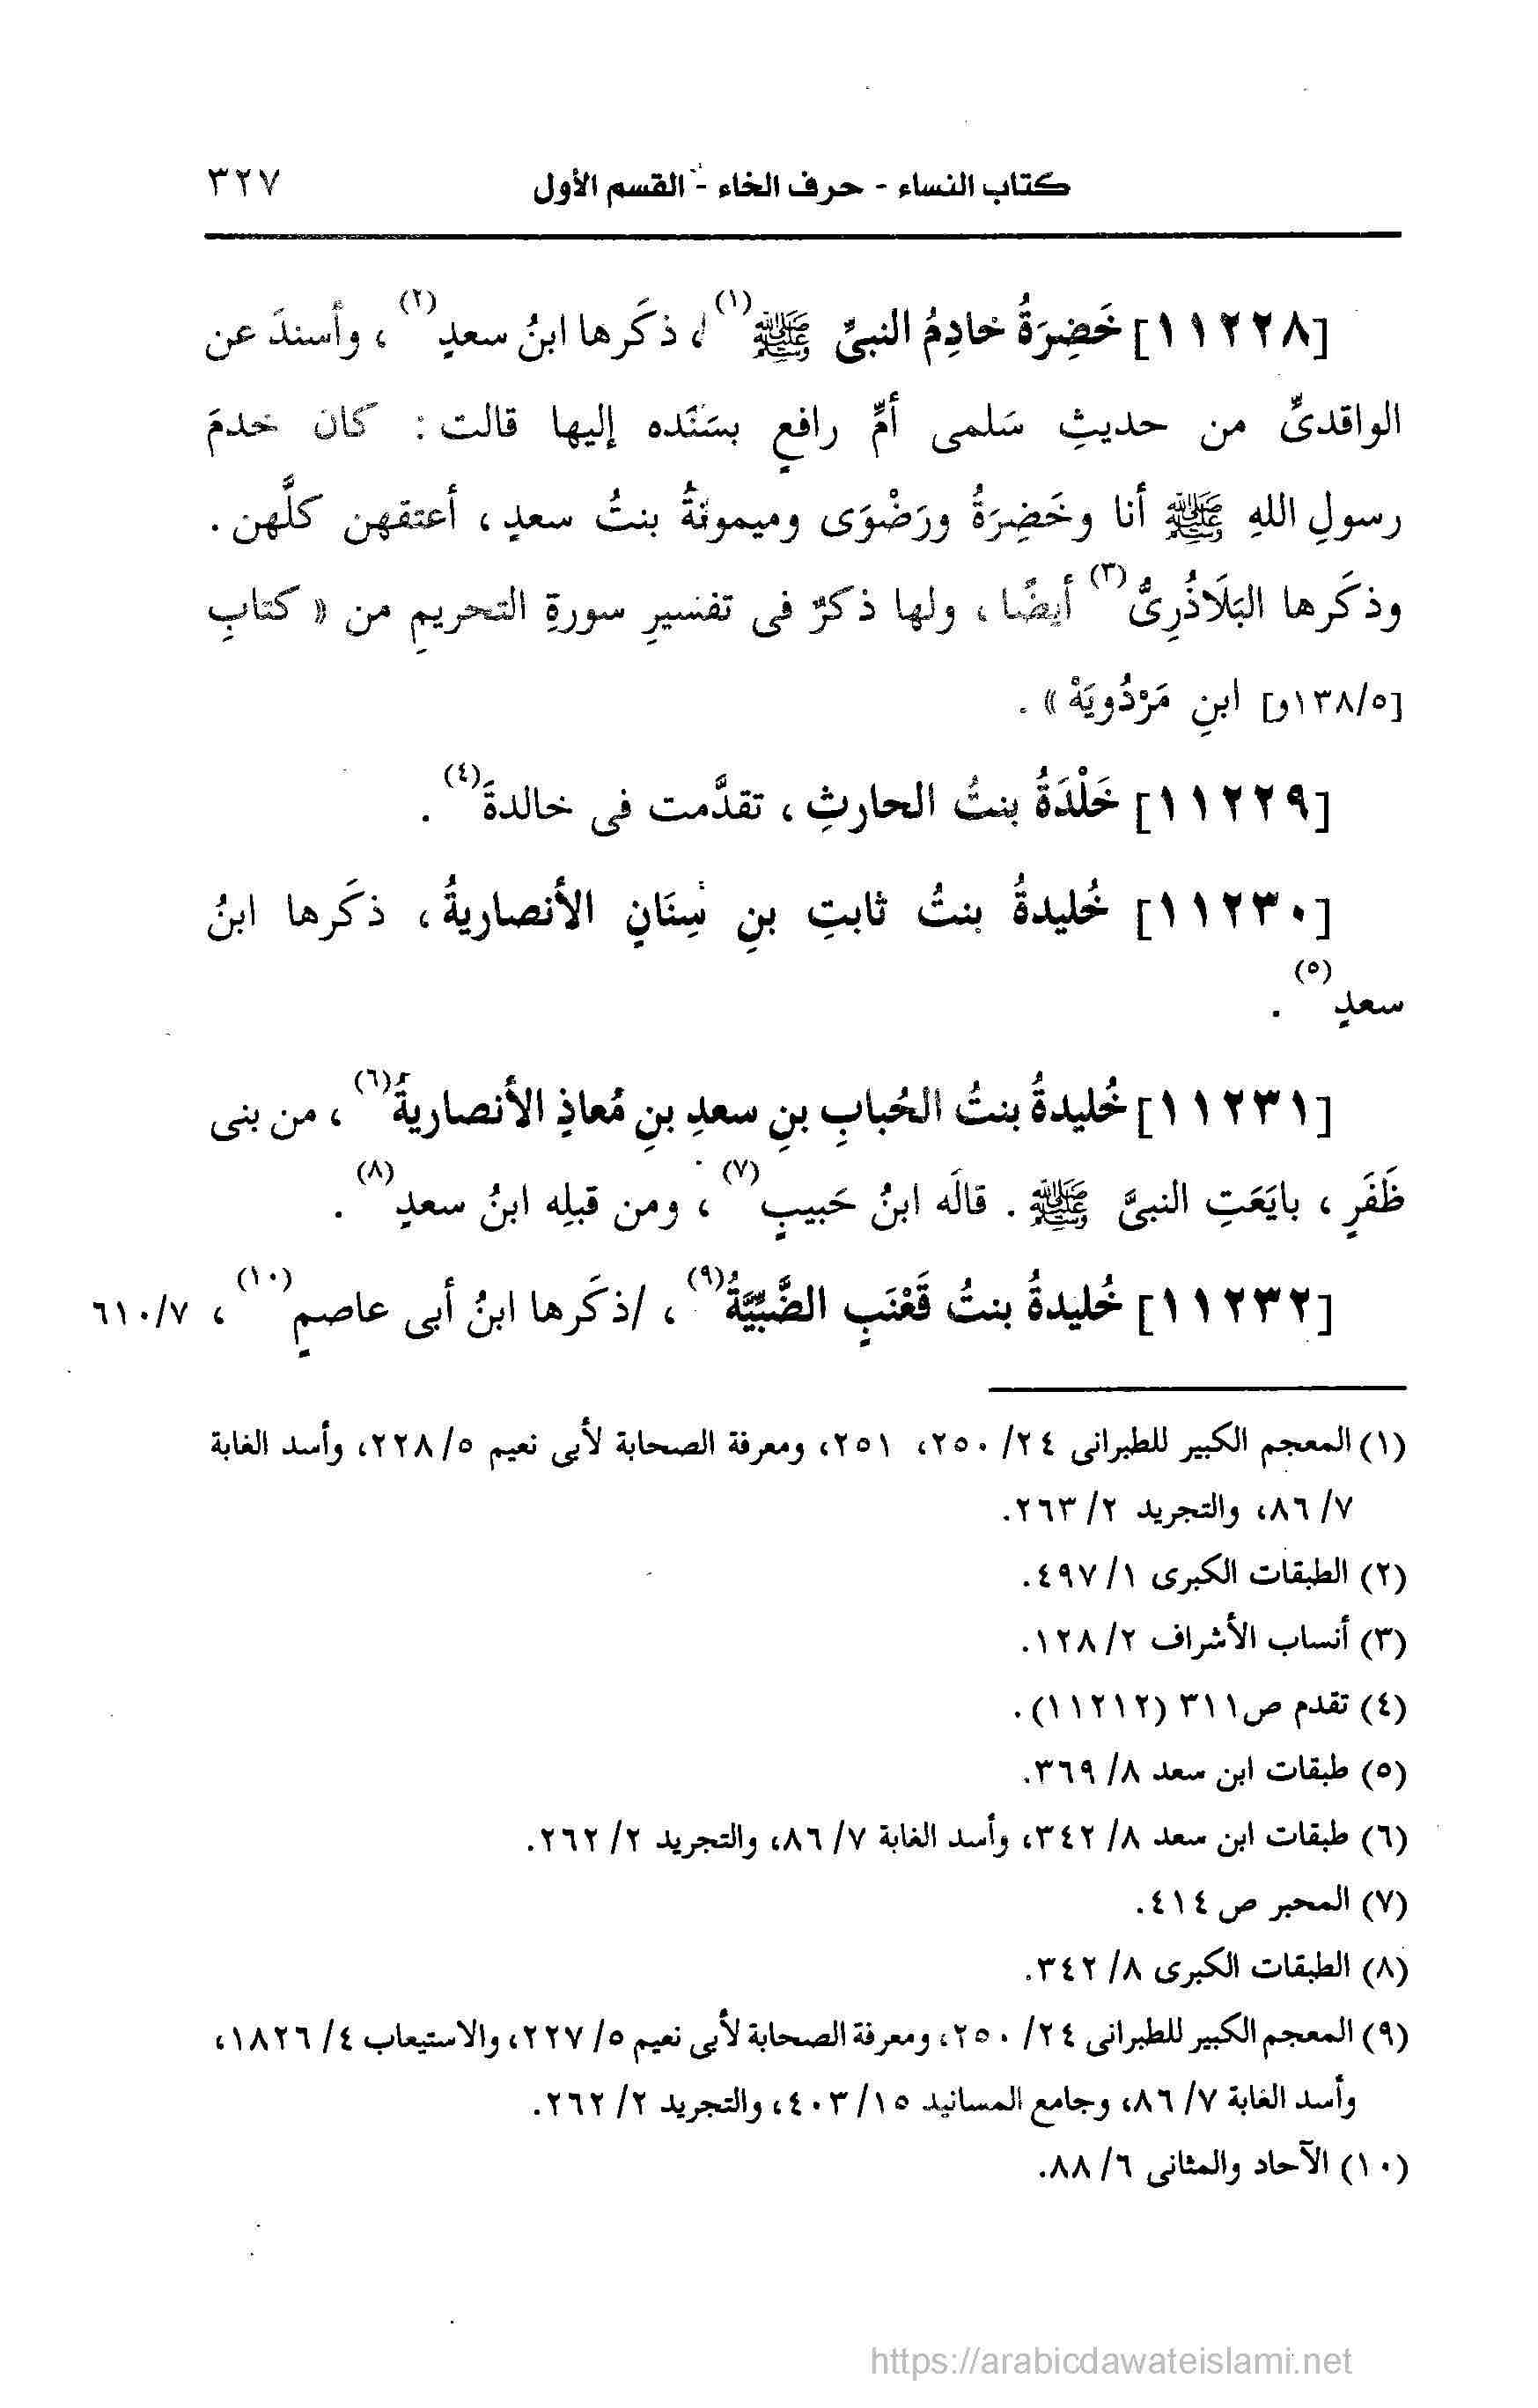 كتاب النساء - حرف الخاء - القسم الأول ٣٢٧
[١١٢٢٨] خَضِرَةُ خادِمُ النبىِّ ﷺ(١)، ذكَرها ابنُ سعدٍ(٢)، وأسندَ عن
الواقدىِّ من حديثِ سَلمى أمِّ رافعٍ بسَنَده إليها قالت: كان خدمَ
رسولِ اللهِ ﷺ أنا وخَضِرَةُ ورَضْوَى وميمونةُ بنتُ سعدٍ، أعتقهن كلَّهن.
وذكَرها البَلَاذُرِىُّ(٣) أيضًا، ولها ذكرٌ فى تفسيرِ سورةِ التحريمِ من «كتابِ
[١٣٨/٥و] ابنِ مَرْدُويَهْ».
[١١٢٢٩] خَلْدَةُ بنتُ الحارثِ، تقدَّمت فى خالدةَ(٤).
[١١٢٣٠] خُليدةُ بنتُ ثابتِ بنِ سِنَانٍ الأنصاريةُ، ذكَرها ابنُ
سعدٍ(٥).
[١١٢٣١] خُليدةُ بنتُ الحُبابِ بنِ سعدِ بنِ مُعاذٍ الأنصاريةُ(٦)، من بنى
ظَفَرٍ، بايَعَتِ النبىَّ ﷺ. قالَه ابنُ حَبيبٍ(٧)، ومن قبلِه ابنُ سعدٍ(٨).
[١١٢٣٢] خُليدةُ بنتُ قَعْنَبٍ الضَّبِّيَّةُ(٩)، /ذكَرها ابنُ أبى عاصمٍ(١٠)، ٦١٠/٧
(١) المعجم الكبير للطبرانى ٢٤/ ٢٥٠، ٢٥١، ومعرفة الصحابة لأبى نعيم ٥/ ٢٢٨، وأسد الغابة
٧/ ٨٦، والتجريد ٢/ ٢٦٣.
(٢) الطبقات الكبرى ١/ ٤٩٧.
(٣) أنساب الأشراف ٢/ ١٢٨.
(٤) تقدم ص٣١١ (١١٢١٢).
(٥) طبقات ابن سعد ٨/ ٣٦٩.
(٦) طبقات ابن سعد ٨/ ٣٤٢، وأسد الغابة ٧/ ٨٦، والتجريد ٢/ ٢٦٢.
(٧) المحبر ص ٤١٤.
(٨) الطبقات الكبرى ٨/ ٣٤٢.
(٩) المعجم الكبير للطبرانى ٢٤/ ٢٥٠، ومعرفة الصحابة لأبى نعيم ٥/ ٢٢٧، والاستيعاب ٤/ ١٨٢٦،
وأسد الغابة ٧/ ٨٦، وجامع المسانيد ١٥/ ٤٠٣، والتجريد ٢/ ٢٦٢.
(١٠) الآحاد والمثانى ٦/ ٨٨.
https://arabicdawateislami.net